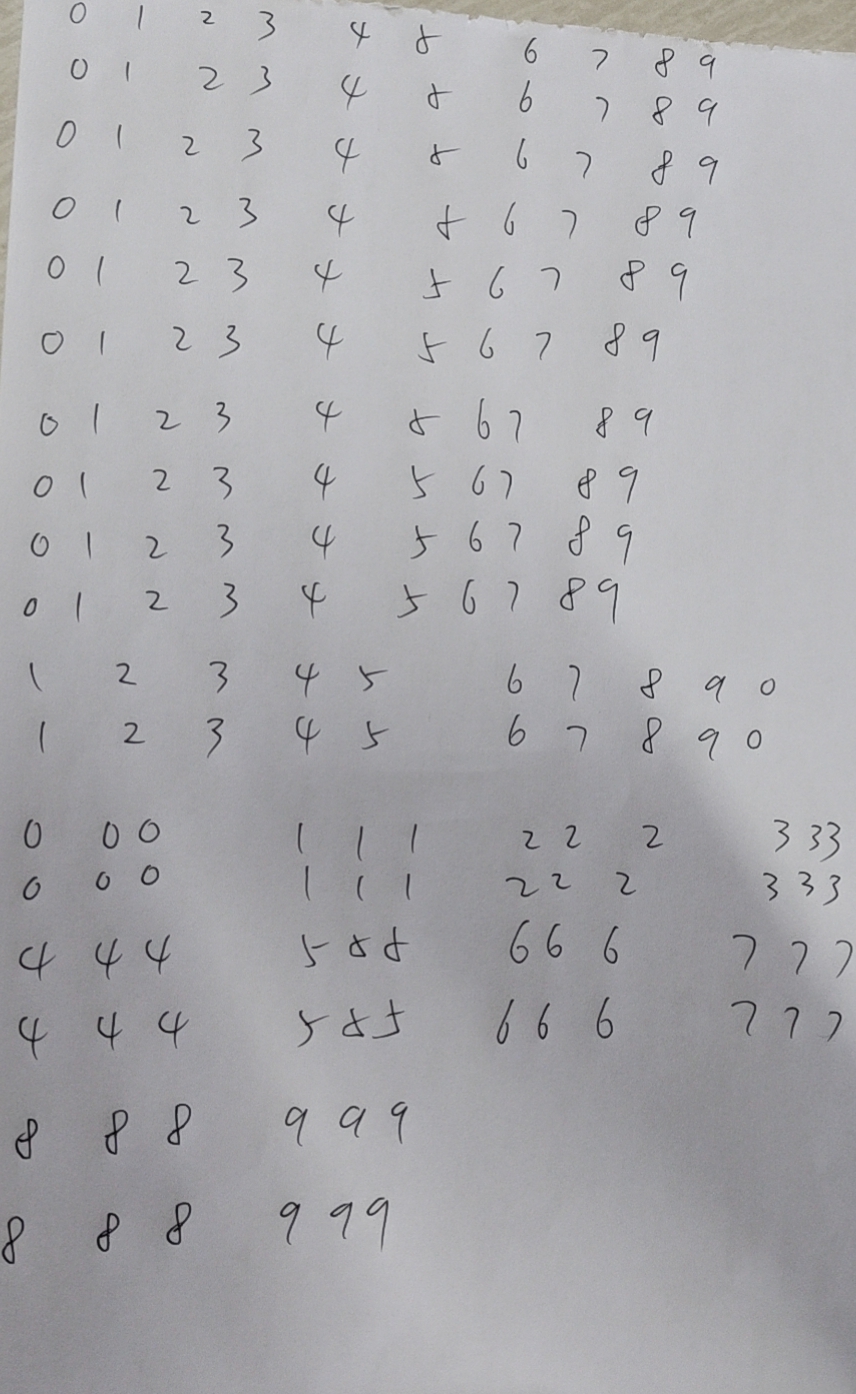 0 1 2 3 4 5 6 7 8 9
0 1 2 3 4 5 6 7 8 9
0 1 2 3 4 5 6 7 8 9
0 1 2 3 4 5 6 7 8 9
0 1 2 3 4 5 6 7 8 9
0 1 2 3 4 5 6 7 8 9
0 1 2 3 4 5 6 7 8 9
0 1 2 3 4 5 6 7 8 9
0 1 2 3 4 5 6 7 8 9
0 1 2 3 4 5 6 7 8 9
1 2 3 4 5 6 7 8 9 0
1 2 3 4 5 6 7 8 9 0
0 0 0 1 1 1 2 2 2 3 3 3
0 0 0 1 1 1 2 2 2 3 3 3
4 4 4 5 5 5 6 6 6 7 7 7
4 4 4 5 5 5 6 6 6 7 7 7
8 8 8 9 9 9
8 8 8 9 9 9